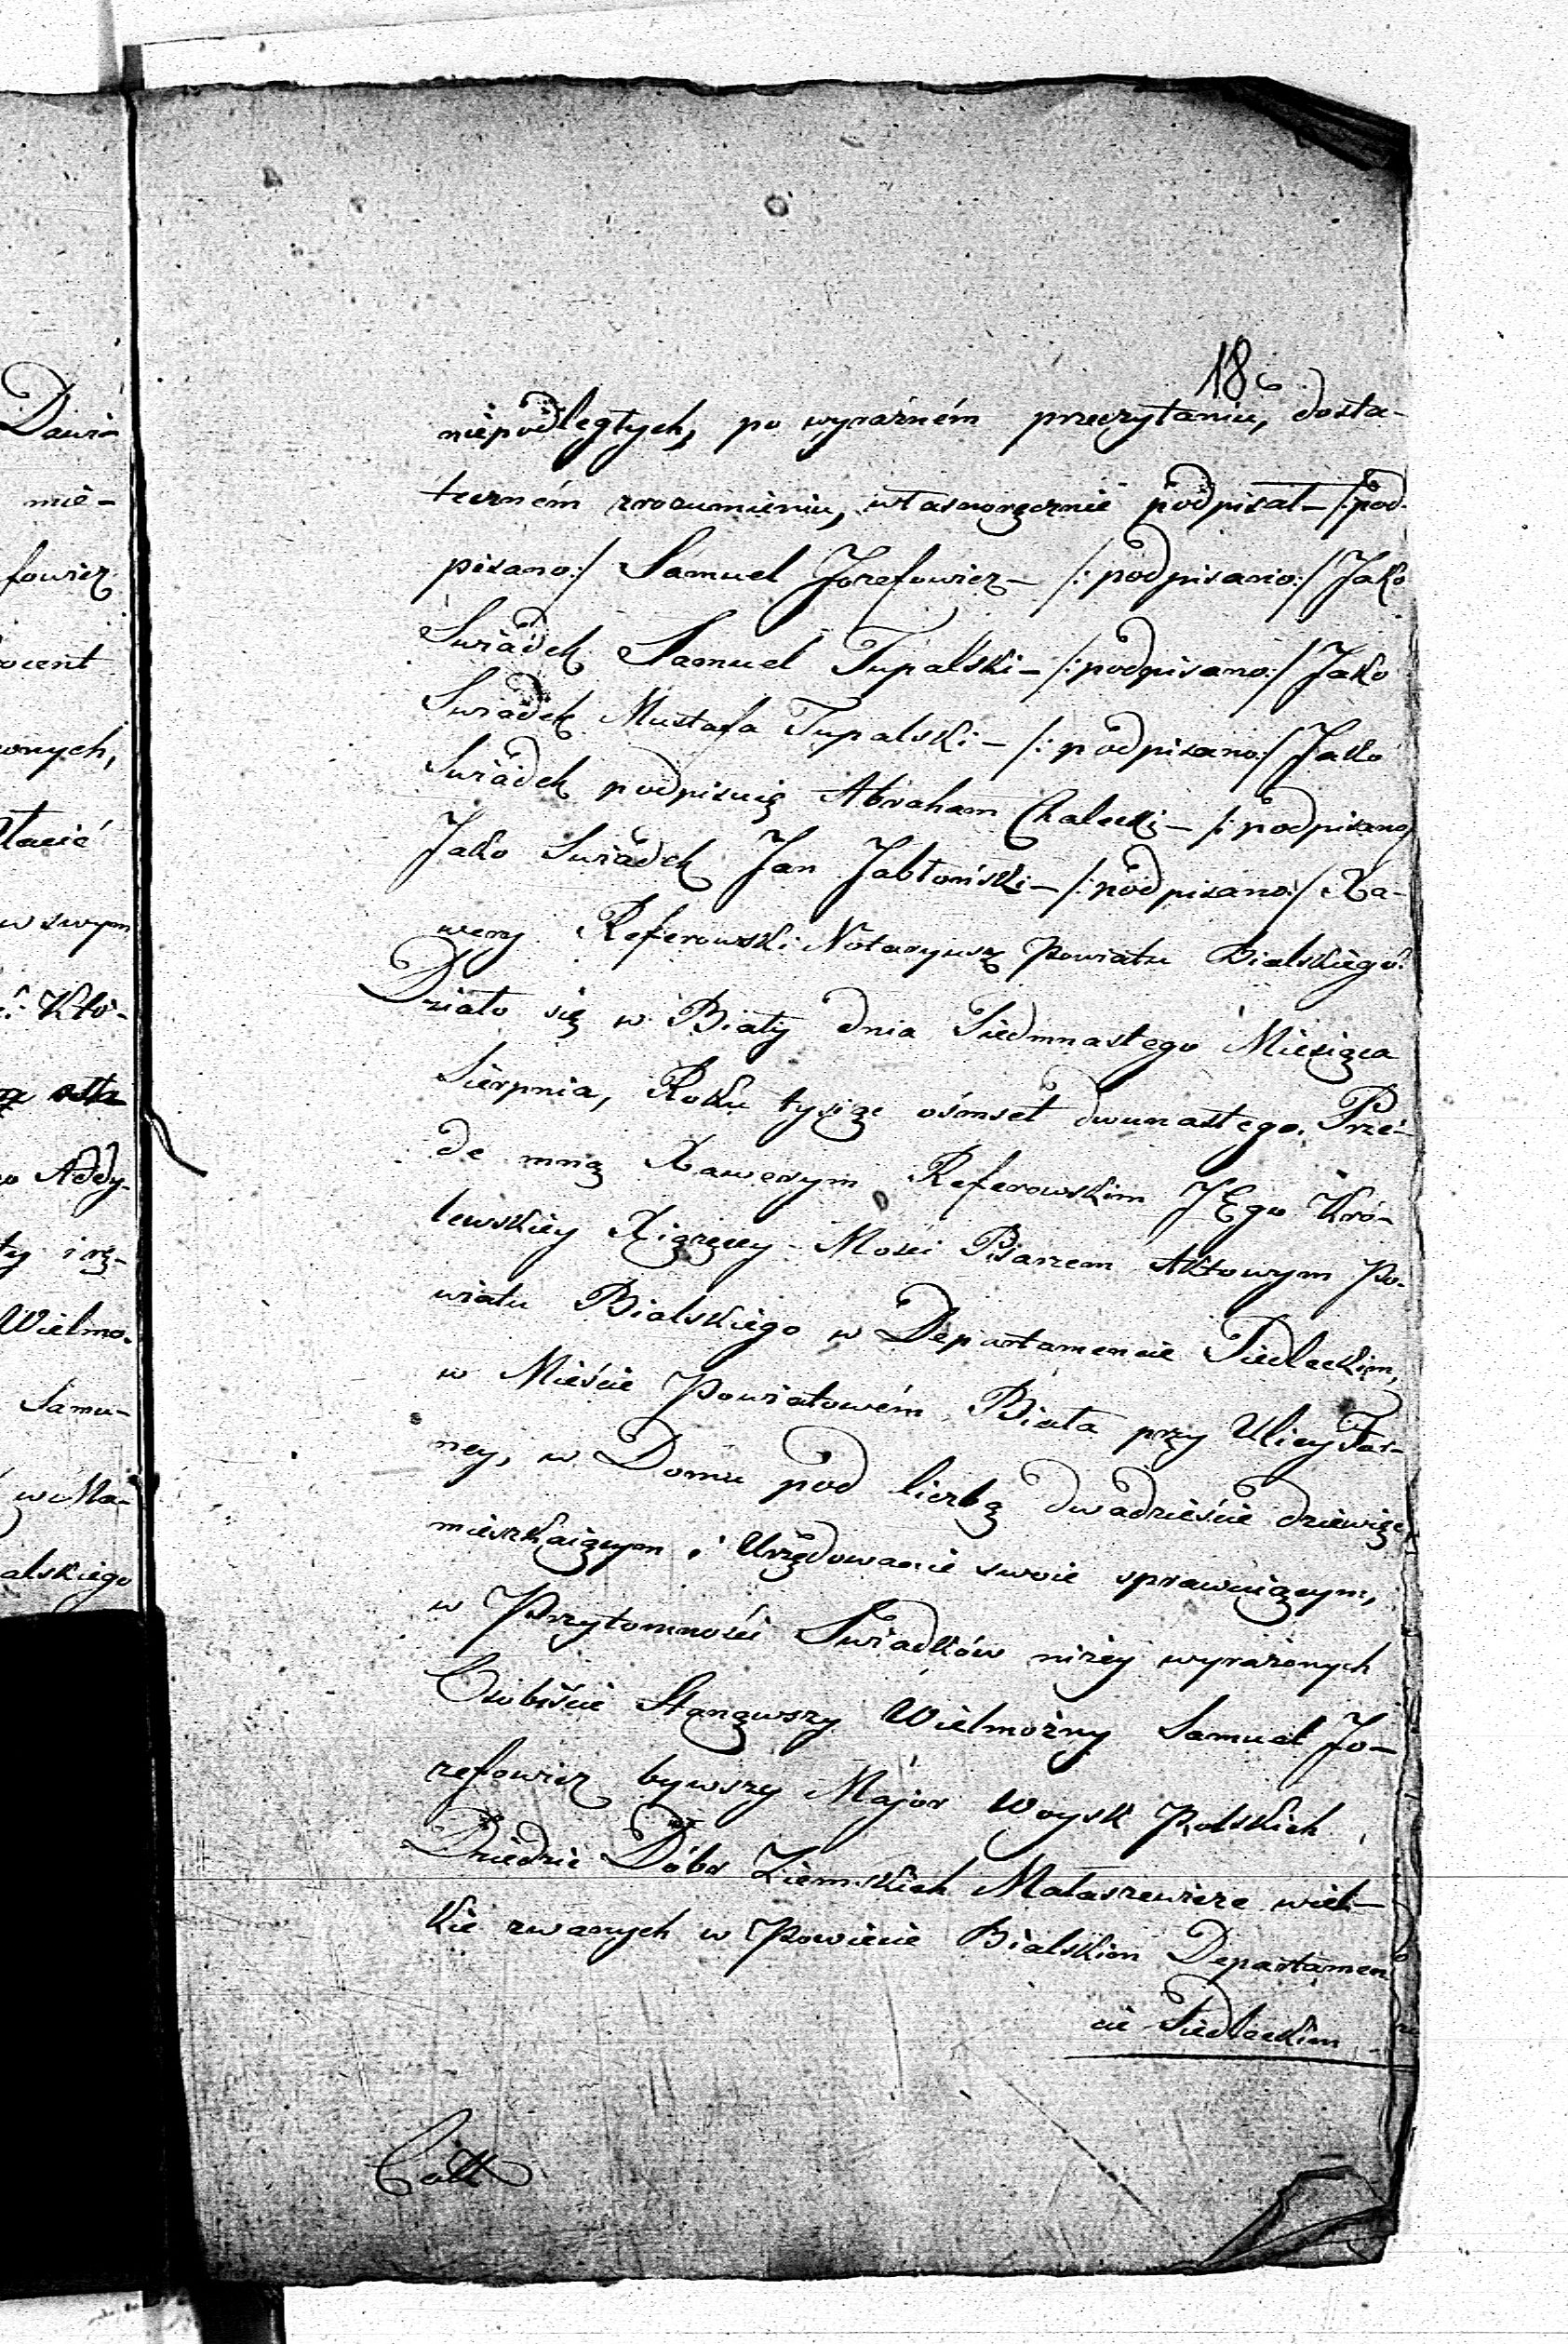 Dawi-
mie-
fowicz
ocent
onych,
płacić
w swym
Któ-
Addy-
Wielmo-
Samu-
w Ma-
alskiego
18
niepodległych, po wyraźném przeczytaniu, dosta-
teczném zrozumieniu, własnoręcznie podpisał – /:pod
pisano:/ Samuel Jozefowicz – /:podpisano:/ Jako
Swiadek Samuel Tupalski – /:podpisano:/ Jako
Swiadek Mustafa Tupalski – /:podpisano:/ Jako
Swiadek podpisuię Abraham Chalecki – /:podpisano/
Jako Swiadek Jan Jabłoński – /:podpisano:/ Xa-
wery Referowski Notaryusz Powiatu Bialskiego.
Działo się w Biały dnia Siedmnastego Miesiąca
Sierpnia, Roku tysiąc ośmset dwunastego. Prze-
de mną Xawerym Referowskim JEgo Kró-
lewskiey Xiążęcey Mości Pisarzem Aktowym Po-
wiatu Bialskiego w Departamencie Siedleckim,
w Mieście Powiatowém Biała przy Ulicy Far-
ney, w Domu pod liczbą dwadzieście dziewięć
mieszkaiącym i Urzędowanie swoie sprawuiącym,
w Przytomności Swiadków niżey wyrażonych
Osobiście Stanąwszy Wielmożny Samuel Jo-
zefowicz bywszy Major Woysk Polskich
Dziedzic Dóbr Ziemskich Małaszewicze wiel-
kie zwanych w Powiecie Bialskim Departamen
cie Siedleckim